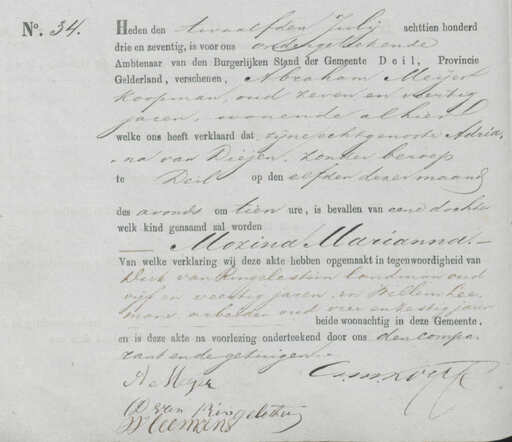 No. 34.
Heden den twaalfden Julij achttien honderd
drie en zeventig, is voor ons ondergeteekende
Ambtenaar van den Burgerlijken Stand der Gemeente Deil, Provincie
Gelderland, verschenen, Abraham Meijer
Koopman, oud zeven en veertig
jaren, wonende alhier
welke ons heeft verklaard dat zijne echtgenoote Adria,
na van Diejen, zonder beroep
te Deil op den elfden dezer maand
des avonds om tien ure, is bevallen van eene dochter
welk kind genaamd zal worden
Mozina Marianna.
Van welke verklaring wij deze akte hebben opgemaakt in tegenwoordigheid van
Dirk van Ringelestein landman oud
vijf en veertig jaren, en Willem Lee,
mans, arbeider oud vier en jaren
beide woonachtig in deze Gemeente,
en is deze akte na voorlezing onderteekend door ons den compa,
rant en de getuigen.
A Meijer
D van Ringelestein
W Leemans